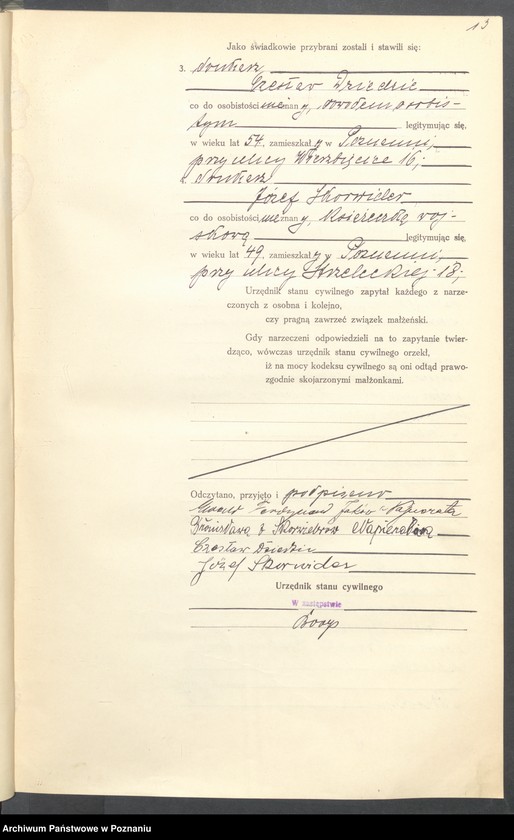 13
Jako świadkowie przybrani zostali i stawili się:
3. drukarz
Czesław Dziedzic
co do osobistości nieznany, dowodem osobis-
tym legitymując się,
w wieku lat 54, zamieszkały w Poznaniu,
przy ulicy Wierzbięcice 16;
4. drukarz
Józef Skorwider,
co do osobistości nieznany, książeczką woj-
skową legitymując się,
w wieku lat 49, zamieszkały w Poznaniu,
przy ulicy Strzeleckiej 18;
Urzędnik stanu cywilnego zapytał każdego z narze-
czonych z osobna i kolejno,
czy pragną zawrzeć związek małżeński.
Gdy narzeczeni odpowiedzieli na to zapytanie twier-
dząco, wówczas urzędnik stanu cywilnego orzekł,
iż na mocy kodeksu cywilnego są oni odtąd prawo-
zgodnie skojarzonymi małżonkami.
Odczytano, przyjęto i podpisano
Ferdynand Jakób Napierała
Bronisława z Napierałowa
Czesław Dziedzic
Józef Skorwider
Urzędnik stanu cywilnego
W zastępstwie
Archiwum Państwowe w Poznaniu